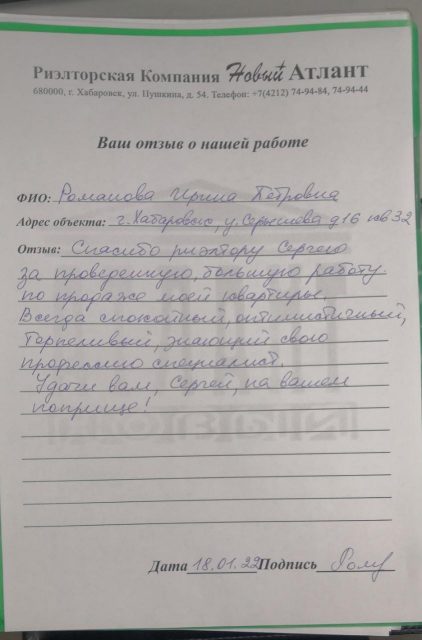 Риэлторская Компания Новый Атлант
680000, г. Хабаровск, ул. Пушкина, д. 54. Телефон: +7(4212) 74-94-84, 74-94-44
Ваш отзыв о нашей работе
ФИО: Романова Ирина Петровна
Адрес объекта: г. Хабаровск, у. Серышева д 16 кв 32
Отзыв: Спасибо риэлтору Сергею
за проведенную, большую работу
по продаже моей квартиры.
Всегда спокойный, оптимистичный,
терпеливый, знающий свою
профессию специалист.
Удачи вам, Сергей, на вашем
поприще!
Дата 18.01.22 Подпись